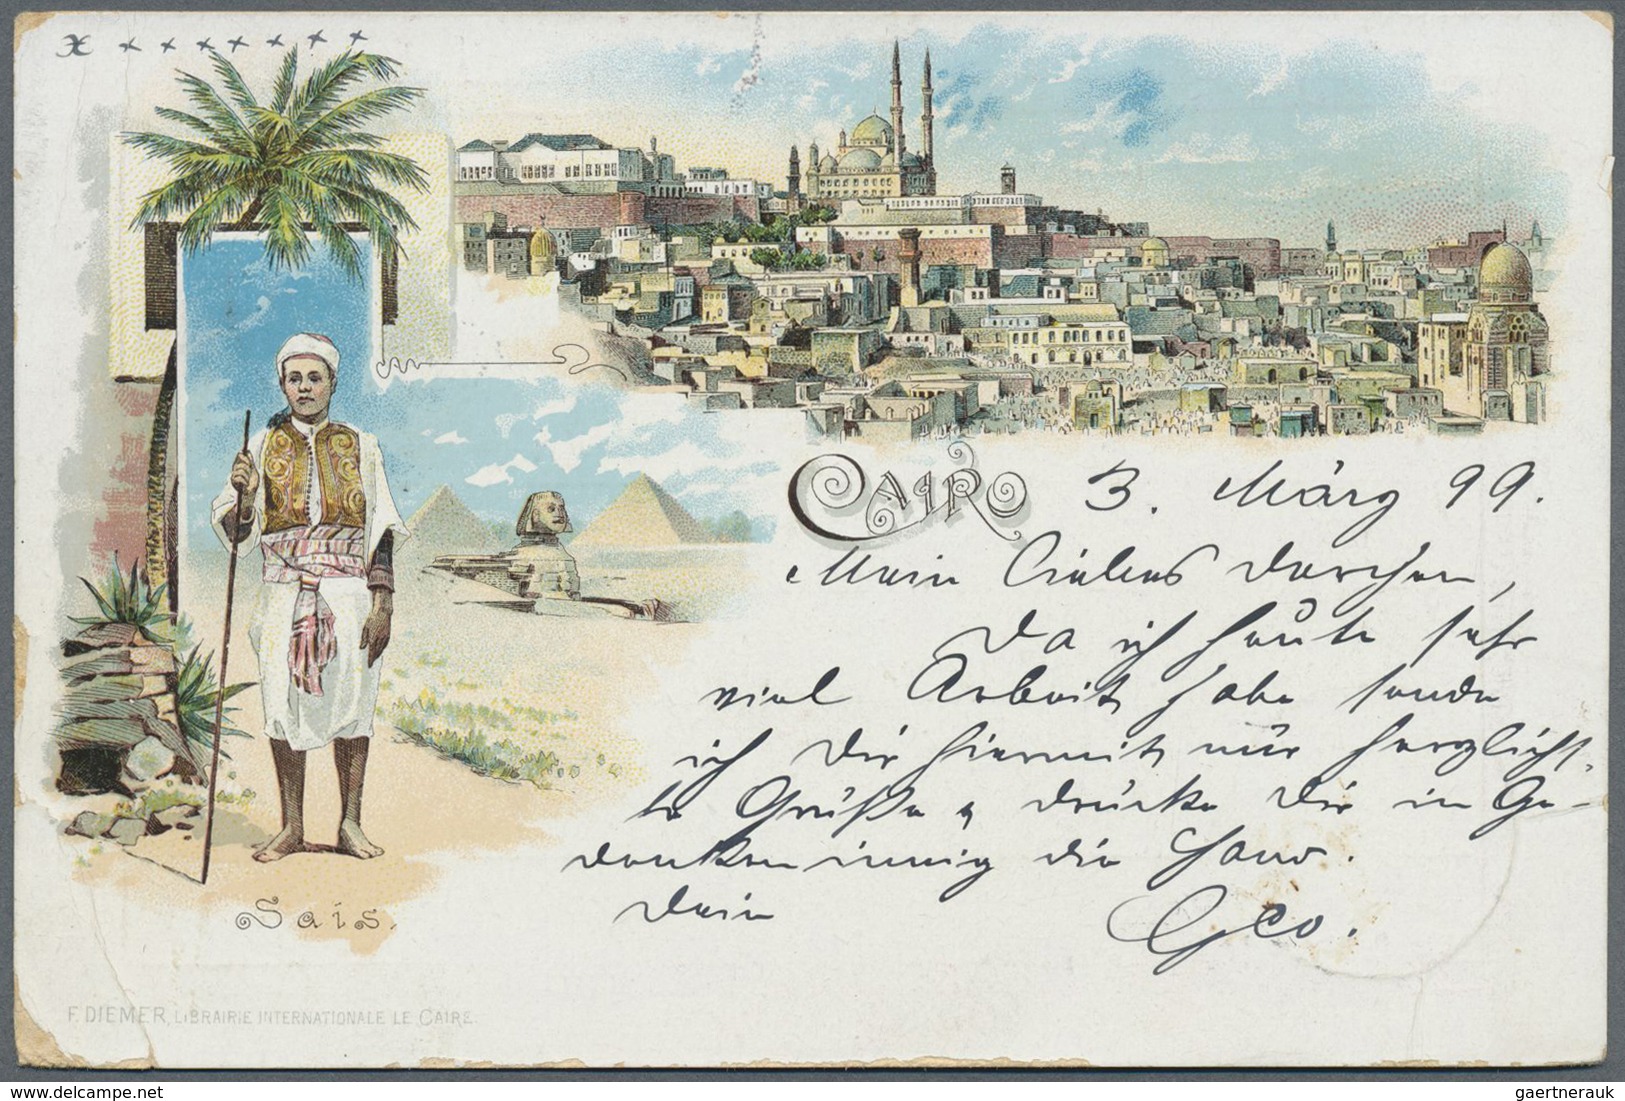 Cairo 3. März 99.
Mein liebes Dorchen,
Da ich heute sehr
viel Arbeit habe sende
ich Dir hiermit nur herzlich-
ste Grüße & drücke Dir in Ge-
danken innig die Hand.
Dein Geo.
Sais.
F. DIEMER, LIBRAIRIE INTERNATIONALE LE CAIRE.
gaertnerauk / delcampe.net